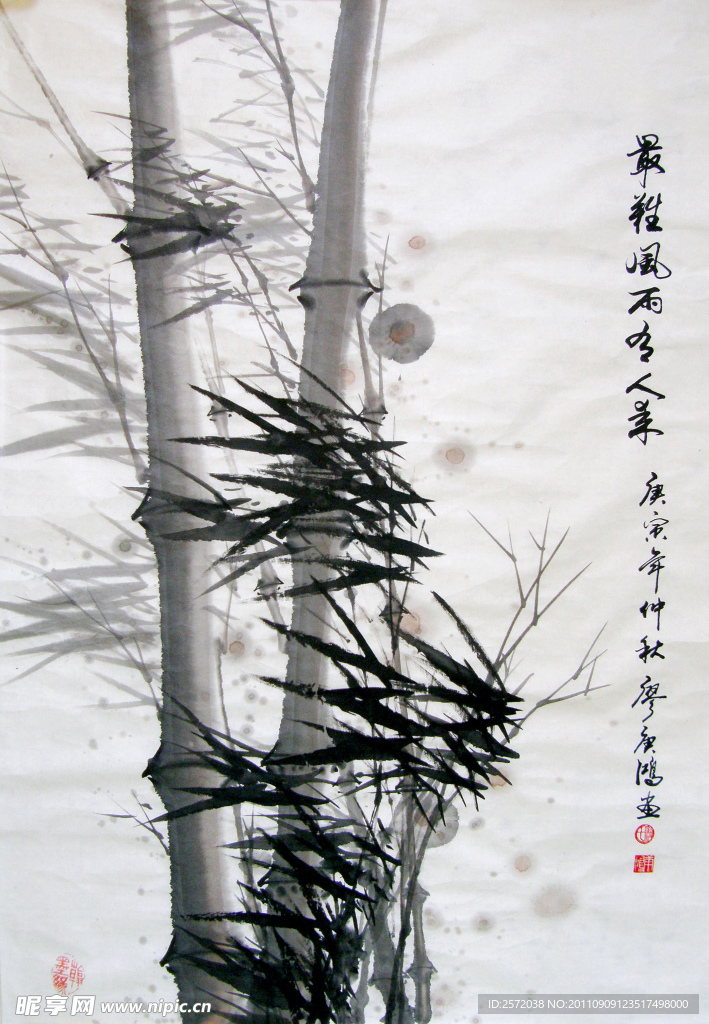 最難風雨有人來
庚寅年仲秋廖庚鴻画
昵享网 www.nipic.cn
ID:2572038 NO:20110909123517498000